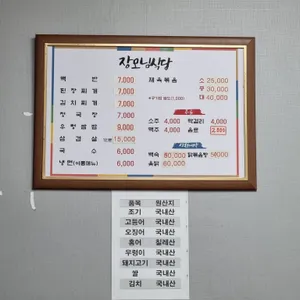 장모님식당
백반 7,000
된장찌개 7,000
김치찌개 7,000
청국장 7,000
우렁쌈밥 9,000
삼겹살 15,000
국수 6,000
냉면(여름메뉴) 6,000
제육볶음 소 25,000
중 30,000
대 40,000
소주 4,000 막걸리 4,000
맥주 4,000 음료 2,000
백숙 60,000 닭볶음탕
옻닭 60,000
품목 원산지
조기 국내산
고등어 국내산
오징어 국내산
홍어 칠레산
우렁이 국내산
돼지고기 국내산
쌀 국내산
김치 국내산